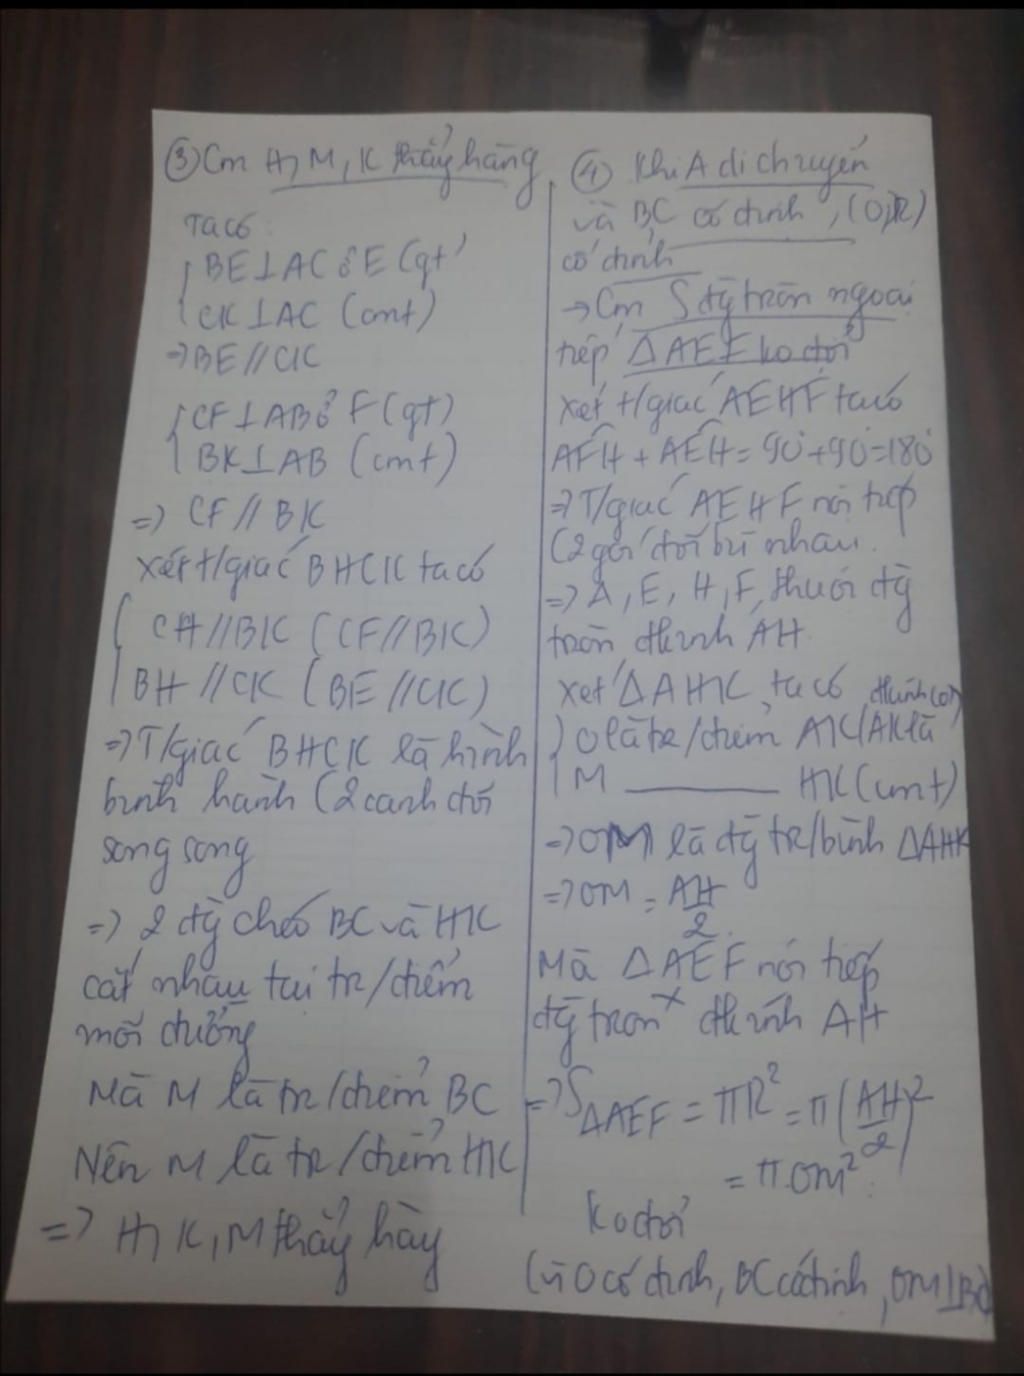 ③ Cm H, M, K thẳng hàng
Ta có:
BE⊥AC ở E (gt)
CK⊥AC (cmt)
=> BE // CK
CF⊥AB ở F (gt)
BK⊥AB (cmt)
=> CF // BK
Xét t/giác BHCK ta có
CH // BK (CF // BK)
BH // CK (BE // CK)
=> T/giác BHCK là hình
bình hành (2 cạnh đối
song song
=> 2 đg chéo BC và HK
cắt nhau tại tr/điểm
mỗi đường
Mà M là tr/điểm BC
Nên M là tr/điểm HK
=> H, K, M thẳng hàng
④ Khi A di chuyển
và BC cố định, (O;R)
cố định
→ Cm S đg tròn ngoại
tiếp ΔAEF ko đổi
Xét t/giác AEHF ta có
AFH + AEH = 90° + 90° = 180°
=> T/giác AEHF nội tiếp
(2 góc đối bù nhau.
=> A, E, H, F, thuộc đg
tròn đkính AH.
Xét ΔAHK, ta có
O là tr/điểm AK (AK là đkính (O))
M ______ HK (cmt)
=> OM là đg tr/bình ΔAHK
=> OM = AH/2.
Mà ΔAEF nội tiếp
đg tròn đkính AH
=> S ΔAEF = πR² = π(AH/2)²
= πOM².
ko đổi
(vì O cố định, BC cố định, OM⊥BC)